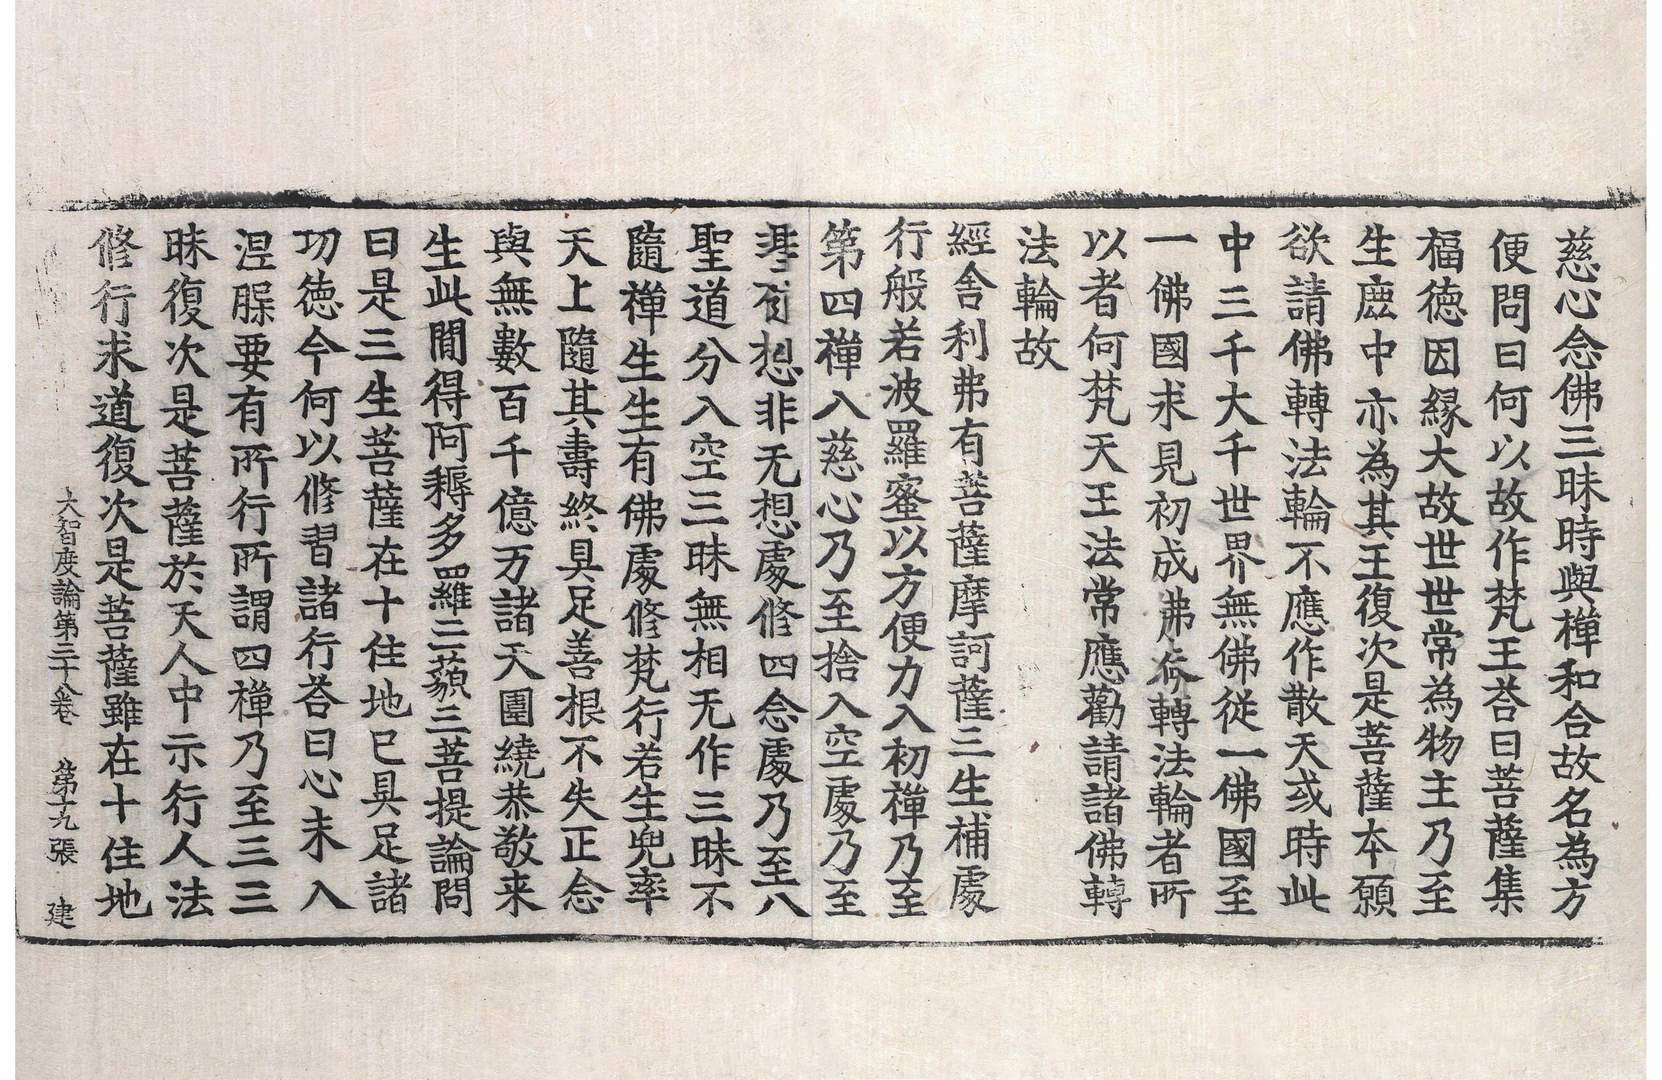 慈心念佛三昧時與禪和合故名為方
便問曰何以故作梵王荅曰菩薩集
福徳因縁大故世世常為物主乃至
生䴢中亦為其王復次是菩薩本願
欲請佛轉法輪不應作散天或時此
中三千大千世界無佛従一佛國至
一佛國求見初成佛未轉法輪者所
以者何梵天王法常應勸請諸佛轉
法輪故
經舍利弗有菩薩摩訶薩三生補處
行般若波羅蜜以方便力入初禪乃至
第四禪入慈心乃至捨入空處乃至
非有想非无想處修四念處乃至八
聖道分入空三昧無相无作三昧不
隨禪生生有佛處修梵行若生兜率
天上隨其壽終具足善根不失正念
與無數百千億万諸天圍繞恭敬来
生此閒得阿耨多羅三藐三菩提論問
曰是三生菩薩在十住地已具足諸
功徳今何以修習諸行荅曰心未入
涅槃要有所行所謂四禪乃至三三
昧復次是菩薩於天人中示行人法
修行求道復次是菩薩雖在十住地
大智度論第三十八卷 第十九張 建